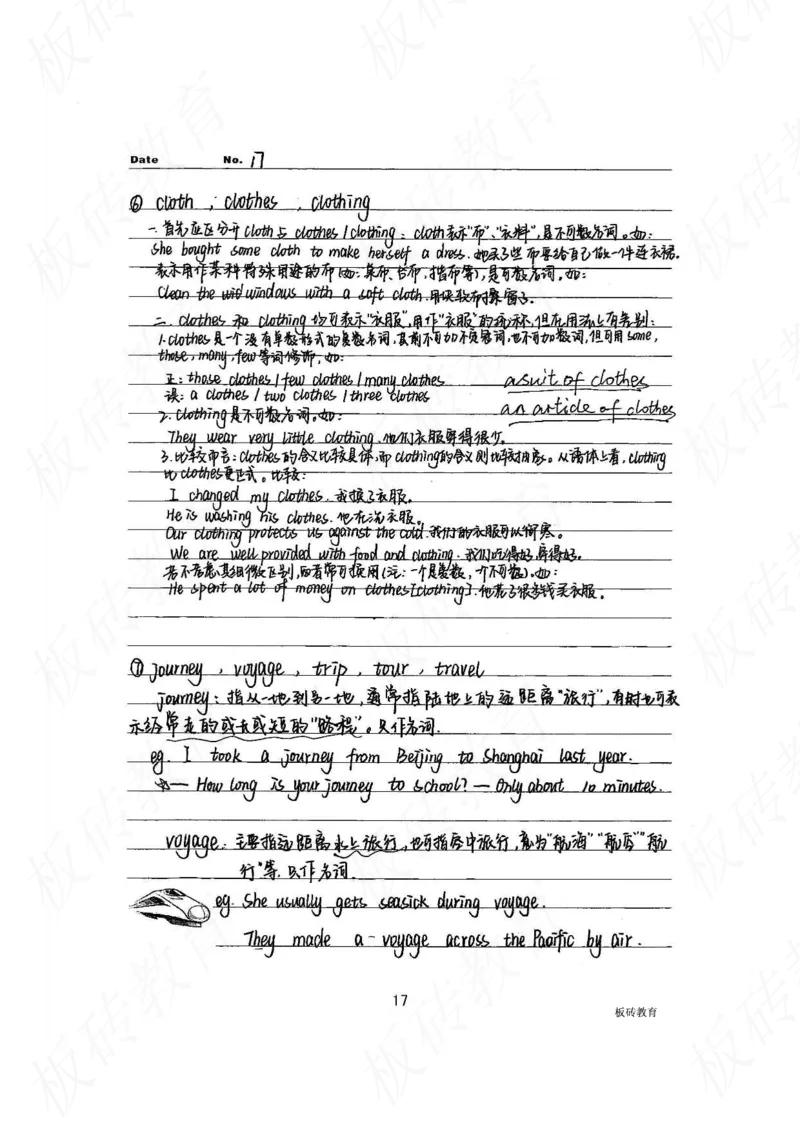 Date No. 17
⑥ cloth , clothes , clothing
一. 首先应区分开cloth与clothes / clothing : cloth表示"布"、"衣料", 是不可数名词。如:
She bought some cloth to make herself a dress. 她买了些布要给自己做一件连衣裙。
表示用作某种特殊用途的布(如: 桌布、台布、揩布等), 是可数名词。如:
Clean the windows with a soft cloth. 用块软布擦窗子。
二. clothes 和 clothing 均可表示"衣服", 用作"衣服"的统称, 但在用法上有差别:
1. clothes是一个没有单数形式的复数名词, 其前不可加不定冠词, 也不可加数词, 但可用some,
those, many, few等词修饰, 如:
正: those clothes / few clothes / many clothes
a suit of clothes
误: a clothes / two clothes / three clothes
an article of clothes
2. clothing是不可数名词。如:
They wear very little clothing. 他们衣服穿得很少。
3. 比较而言: clothes的含义比较具体, 而clothing的含义则比较抽象。从语体上看, clothing
比clothes更正式。比较:
I changed my clothes. 我换了衣服。
He is washing his clothes. 他在洗衣服。
Our clothing protects us against the cold. 我们的衣服可以御寒。
We are well provided with food and clothing. 我们吃得好, 穿得好。
若不考虑其细微区别, 两者常可换用(注: 一个是复数, 一个不可数)。如:
He spent a lot of money on clothes [clothing]. 他花了很多钱买衣服。
⑦ journey , voyage , trip , tour , travel
journey: 指从一地到另一地, 通常指陆地上的远距离"旅行", 有时也可表
示经常走的或长或短的"路程"。只作名词.
eg. I took a journey from Beijing to Shanghai last year.
☆— How long is your journey to school? — Only about 10 minutes.
voyage: 主要指远距离水上旅行, 也可指空中旅行, 意为"航海""航空""航
行"等. 只作名词.
eg. She usually gets seasick during voyage.
They made a voyage across the Pacific by air.
17
板砖教育
板砖教育